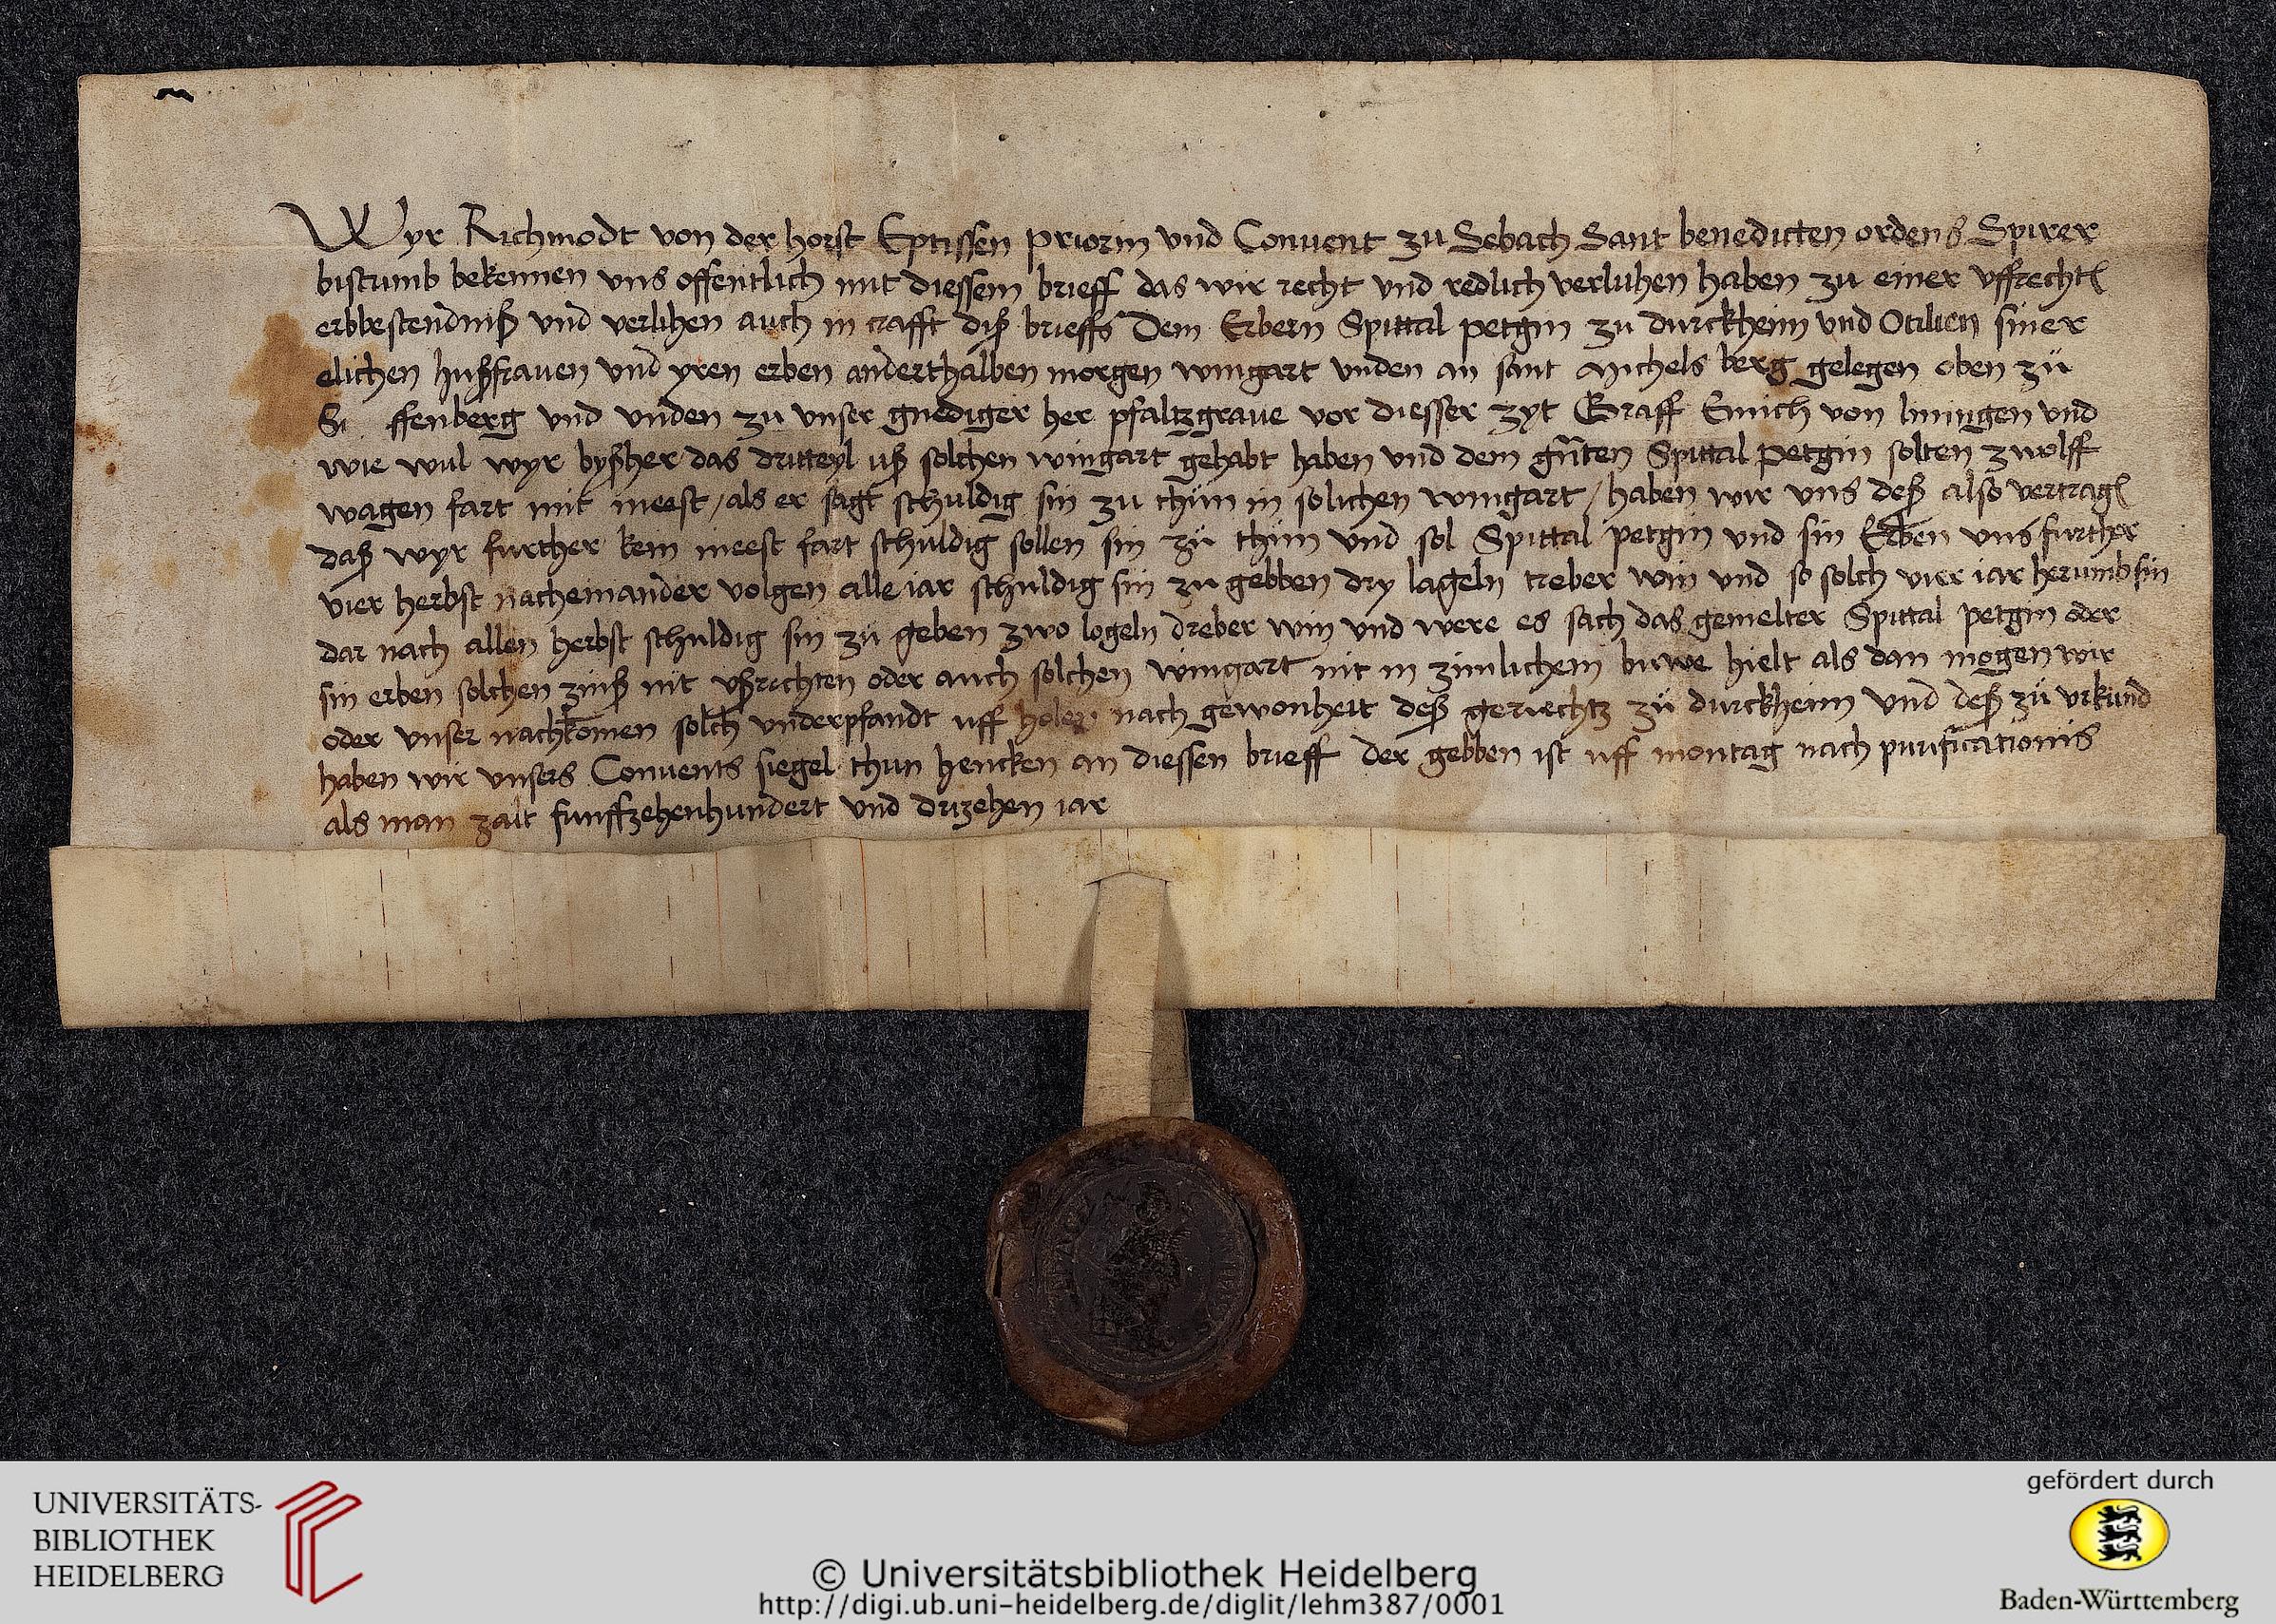 Wyr Richmodt von der horst Eptissen priorin vnd Conuent zu Sebach Sant benedicten ordens Spirer
bistumb bekennen vns offentlich mit diessem brieff das wir recht vnd redlich verluhen haben zu einer vffrecht
erbbestendniß vnd verlihen auch in crafft diß brieffs Dem Erbern Spittal petgin zu durckheim vnd Otilien siner
elichen hußfrauen vnd yren erben anderthalben morgen wingart vnden an sant Michels berg gelegen oben zü
ffenberg vnd vnden zu vnser gnediger her pfaltzgraue vor diesser zyt Graff Emich von liningen vnd
wie wul wyr byßher das dritteyl uß solchen wingart gehabt haben vnd dem gnten Spittal petgin solten zwolff
wagen fart mit meest / als er sagt schuldig sin zu thün in solichen wingart / haben wir vns deß also vertrag
daß wyr further kein meest fart schuldig sollen sin zü thün vnd sol Spittal petgin vnd sin Erben vns further
vier herbst nacheinander volgen alle iar schuldig sin zu gebben dry lageln treber win vnd so solch vier iar herumb sin
dar nach allen herbst schuldig sin zü geben zwo logeln dreber win vnd were es sach das gemelter Spittal petgin oder
sin erben solchen zinß nit vßrichten oder auch solchen wingart nit in zimlichem buwe hielt als dan mogen wir
oder vnser nachkomen solch vnderpfandt uff holen nach gewonheit deß geriechtz zü durckheim vnd deß zü vrkund
haben wir vnsers Conuents siegel thun hencken an diessen brieff der gebben ist uff montag nach purificationis
als man zalt funffzehenhundert vnd drizehen iar
UNIVERSITÄTS-
BIBLIOTHEK
HEIDELBERG
© Universitätsbibliothek Heidelberg
http://digi.ub.uni-heidelberg.de/diglit/lehm387/0001
gefördert durch
Baden-Württemberg